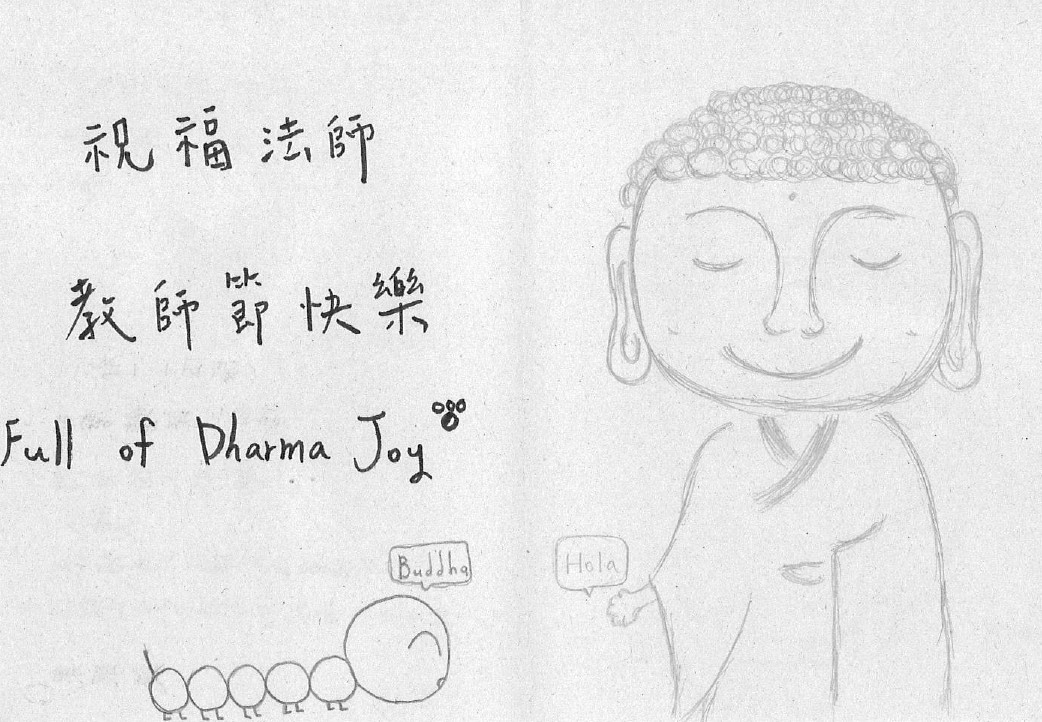 祝福法師
教師節快樂
Full of Dharma Joy
Buddha
Hola